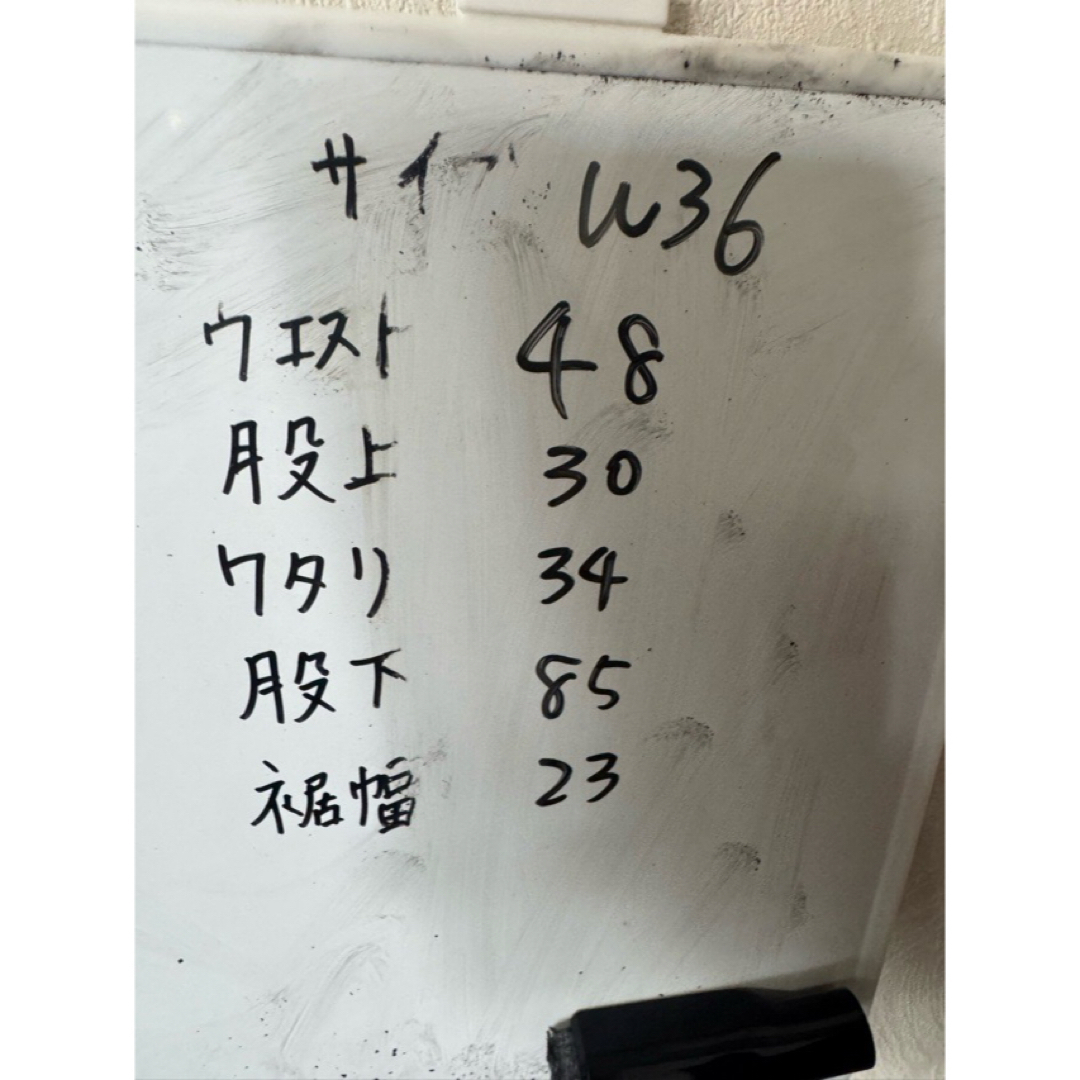 サイ W36
ウエスト 48
股上 30
ワタリ 34
股下 85
裾幅 23